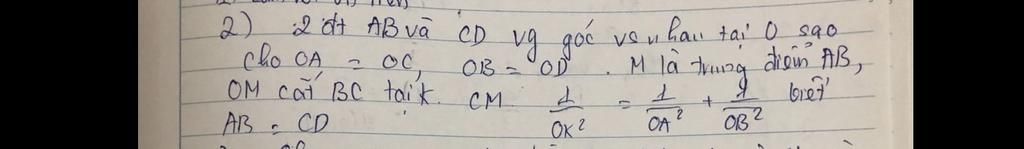 2) 2 đt AB và CD vg góc vs nhau tại O sao
cho OA = OC, OB = OD . M là trung điểm AB,
OM cắt BC tại K. CM 1/OK² = 1/OA² + 1/OB² biết
AB = CD